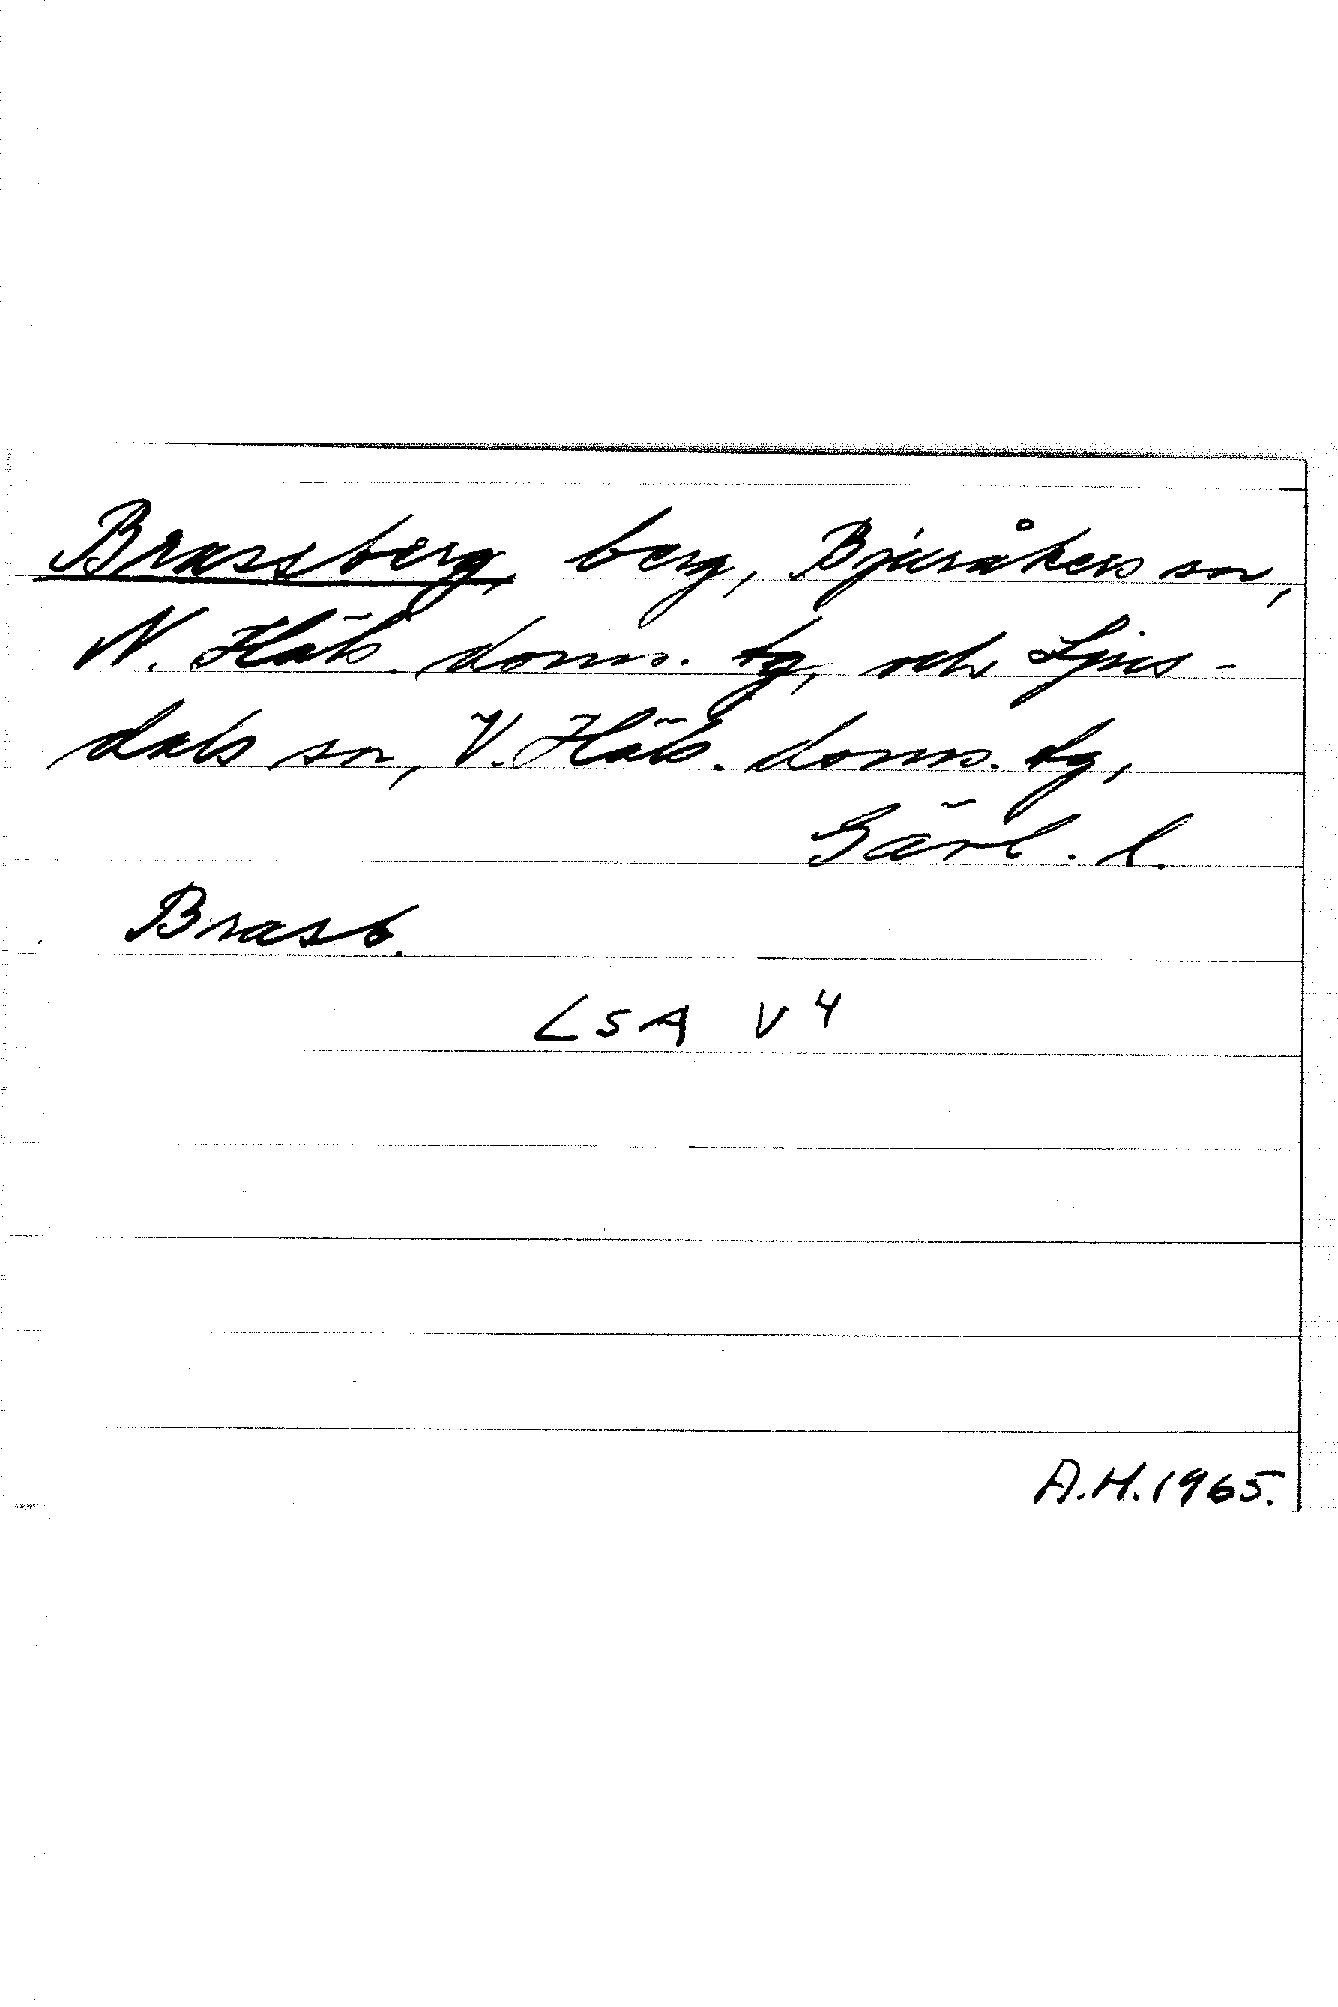 Brassberg, berg, Bjuråkers sn,
N. Häls. doms. tg, och Ljus-
dals sn, V. Häls. doms. tg,
Gävl. l.
Brassb.
LSA V4
A.H. 1965.